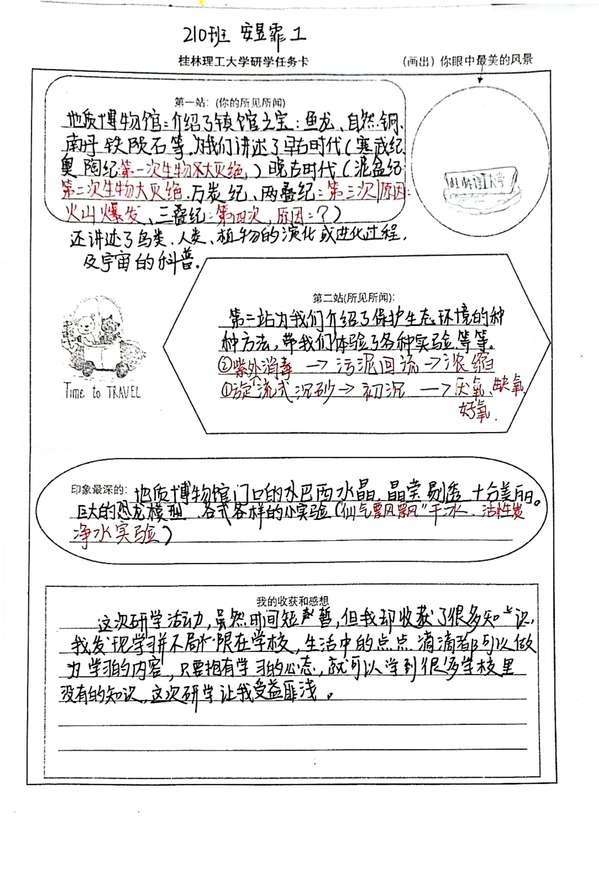 210班 安昱霏 1
桂林理工大学研学任务卡
(画出)你眼中最美的风景
第一站：(你的所见所闻)
地质博物馆：介绍了镇馆之宝：鱼龙、自然铜、
南丹铁陨石等，为我们讲述了早古时代(寒武纪
奥陶纪第一次生物大灭绝，)晚古时代(泥盆纪
第二次生物大灭绝.万炭纪、两叠纪：第三次 原因：
火山爆发、三叠纪：第四次，原因=？)
还讲述了鸟类、人类、植物的演化或进化过程，
及宇宙的科普。
桂林理工大学
第二站(所见所闻)：
第二站为我们介绍了保护生态环境的种
种方法，带我们体验了各种实验等等。
②紫外消毒→污泥回流→浓缩
①旋流式沉砂→初沉→厌氧、缺氧
好氧.
Time to TRAVEL
印象最深的：地质博物馆门口的巴西水晶，晶莹剔透 十分美丽。
巨大的恐龙模型.各式各样的小实验("仙气飘飘"干冰、活性炭
净水实验)
我的收获和感想
这次研学活动，虽然时间短暂，但我却收获了很多知识，
我发现学习并不局限在学校，生活中的点点滴滴都可以做
为学习的内容，只要拥有学习的心态，就可以学到很多学校里
没有的知识，这次研学让我受益匪浅。